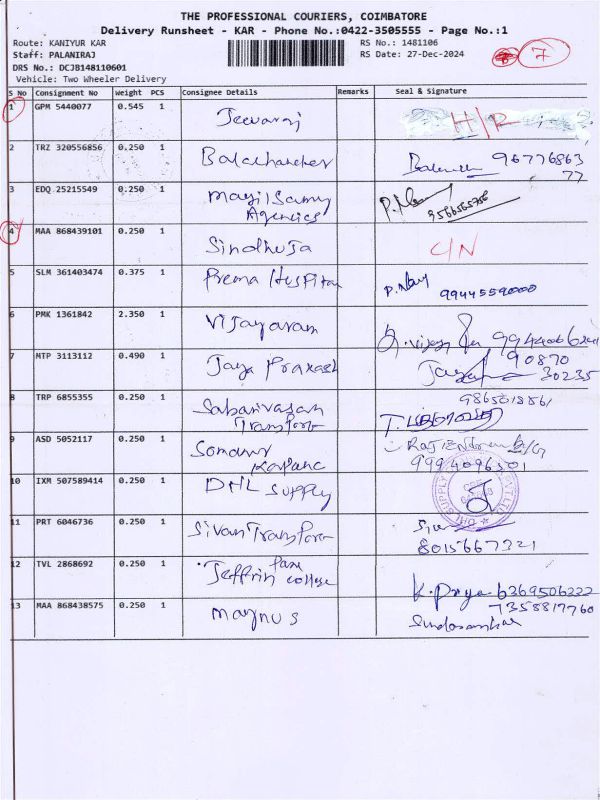 THE PROFESSIONAL COURIERS, COIMBATORE
Delivery Runsheet - KAR - Phone No.:0422-3505555 - Page No.:1
Route: KANIYUR KAR RS No.: 1481106
Staff: PALANIRAJ RS Date: 27-Dec-2024
7
DRS No.: DCJB148110601
Vehicle: Two Wheeler Delivery
S No Consignment No Weight PCS Consignee Details Remarks Seal & Signature
1 GPM 5440077 0.545 1 Jeevaraj H/R
2 TRZ 320556856 0.250 1 96776863
77
3 EDQ 25215549 0.250 1 Mayil Samy
Agencies
4 MAA 868439101 0.250 1 Sindhuja C/N
5 SLM 361403474 0.375 1 Prema Hospital 9944559000
6 PMK 1361842 2.350 1 Vijayaram
7 MTP 3113112 0.490 1 Jaya Prakash 90870
30235
8 TRP 6855355 0.250 1 Sabarivasan
Transport
9 ASD 5052117 0.250 1 9994096301
10 IXM 507589414 0.250 1 DHL Supply
11 PRT 6046736 0.250 1 Sivan Transport
8015667321
12 TVL 2868692 0.250 1 Jeffrin college K. Priya 6369506222
13 MAA 868438575 0.250 1 Magnus 7358817760